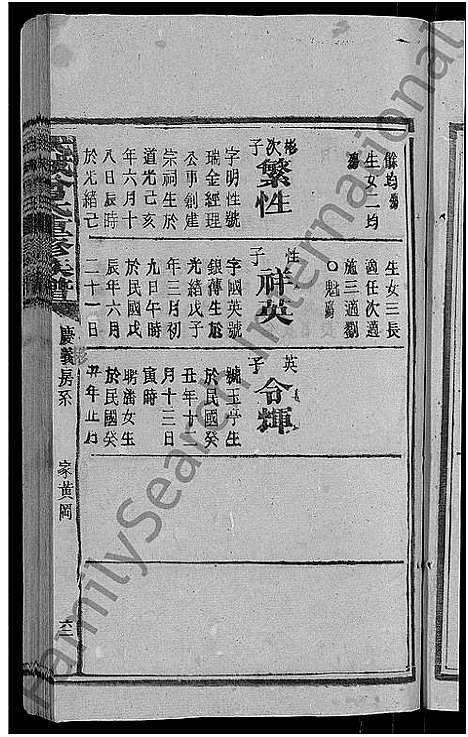 餘均殤
生女二均
殤
彬次子
繁性
字明性號
瑞金經理
公事創建
宗祠生於
道光己亥
年六月十
八日辰時
於光緒己
生女三長
適任次適
施三適劉
○魁殤
性子
祥英
字國英號
銀傳生於
光緒戊子
年三月初
九日午時
於民國戊
辰年六月
二十一日
英子
令輝
號玉亭生
於民國癸
丑年十一
月十三日
寅時
娉潘女生
於民國癸
丑年正月
重修族譜
慶義房系
彬
家黃岡
六二
FamilySearch International